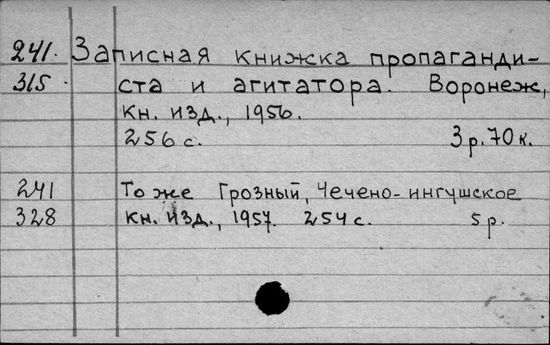 241. Записная книжка пропаганди-
315. ста и агитатора. Воронеж,
кн. изд., 1956.
256 с. 3 р. 70 к.
241 То же Грозный, Чечено-ингушское
328 кн. изд., 1957. 254 с. 5 р.